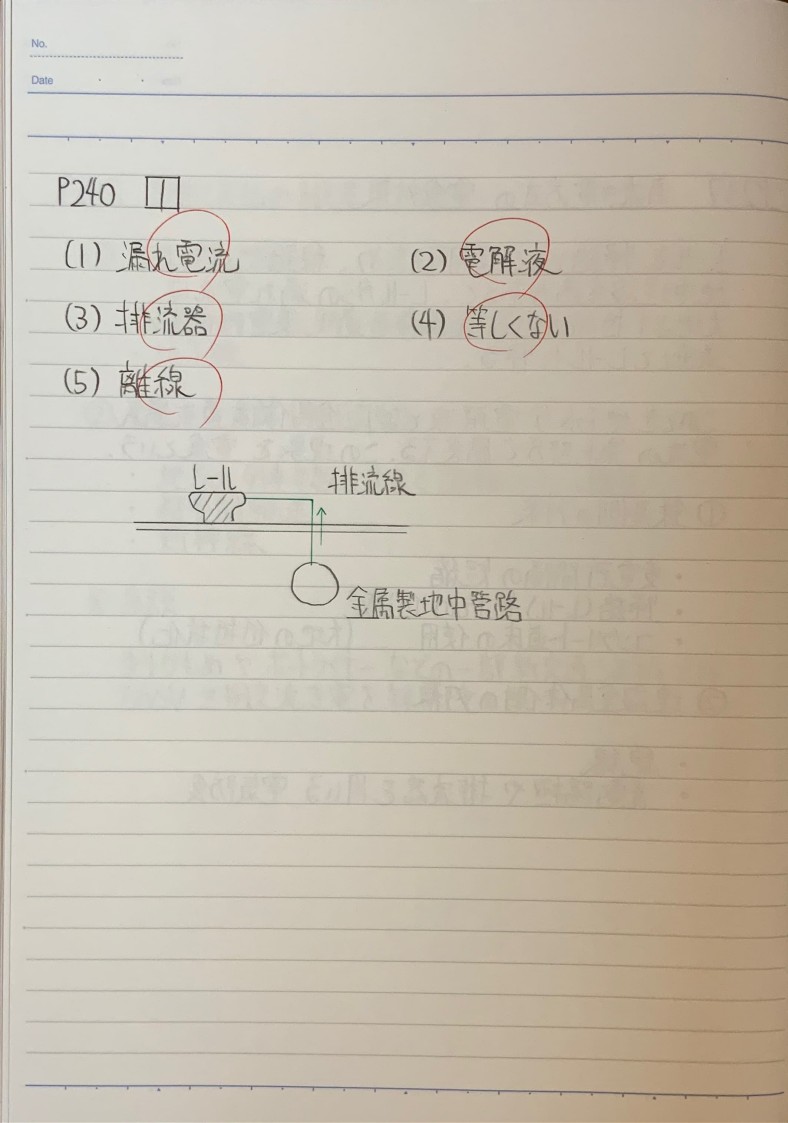 No.
Date
P240 1
(1) 漏れ電流 (2) 電解液
(3) 排流器 (4) 等しくない
(5) 離線
レール 排流線
金属製地中管路